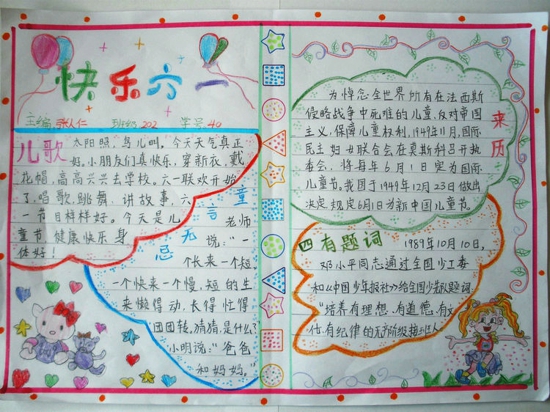 快乐六一
主编:张人仁 班级:202 学号:40
儿歌
太阳照,鸟儿叫。今天天气真正
好,小朋友们真快乐,穿新衣,戴
花帽,高高兴兴去学校。六一联欢开始
了,唱歌,跳舞,讲故事,六
一节目样样好。今天是儿
童节,健康快乐身
体好!
童言无忌
老师
说:“一
个长来一个短,
一个快来一个慢,短的生
来懒得动,长得忙得
团团转,猜猜,是什么?”
小明说:“爸爸
和妈妈。”
来历
为悼念全世界所有在法西斯
侵略战争中死难的儿童,反对帝国
主义,保障儿童权利,1949年11月,国际
民主妇女联合会在莫斯科召开执
委会,将每年6月1日定为国际
儿童节,我国于1949年12月23日做出
决定规定6月1日为新中国儿童节。
四有题词
1989年10月10日,
邓小平同志通过全国少工委
和《中国少年报社》为给全国少先队题词
“培养有理想、有道德、有文
化有纪律的无产阶级接班人